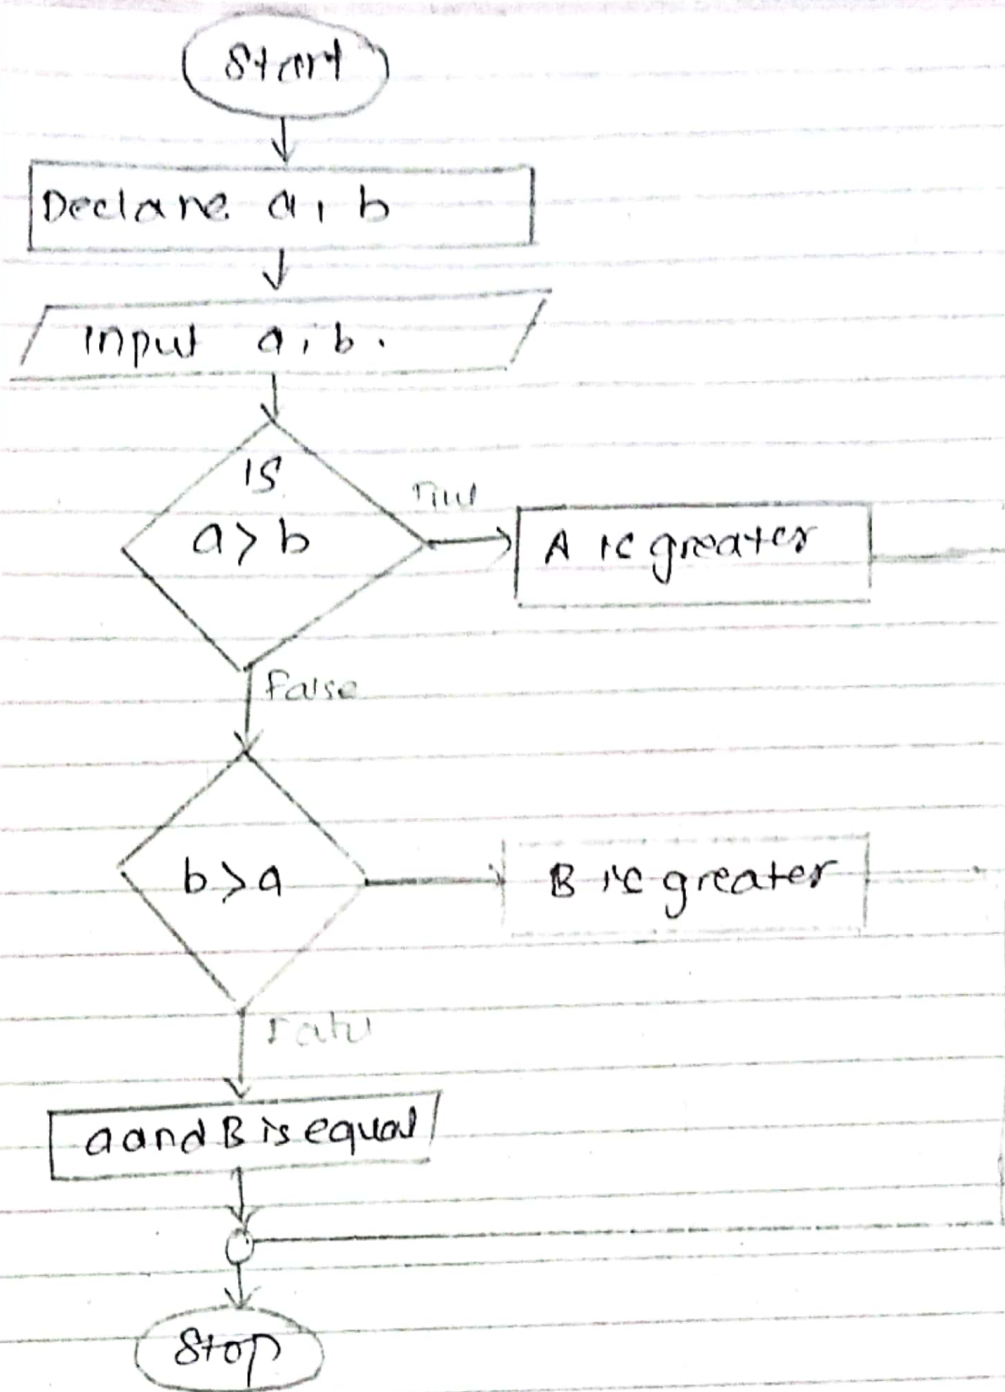 Start
Declare a, b
Input a, b.
IS
a > b
True
A is greater
False
b > a
B is greater
False
a and B is equal
Stop